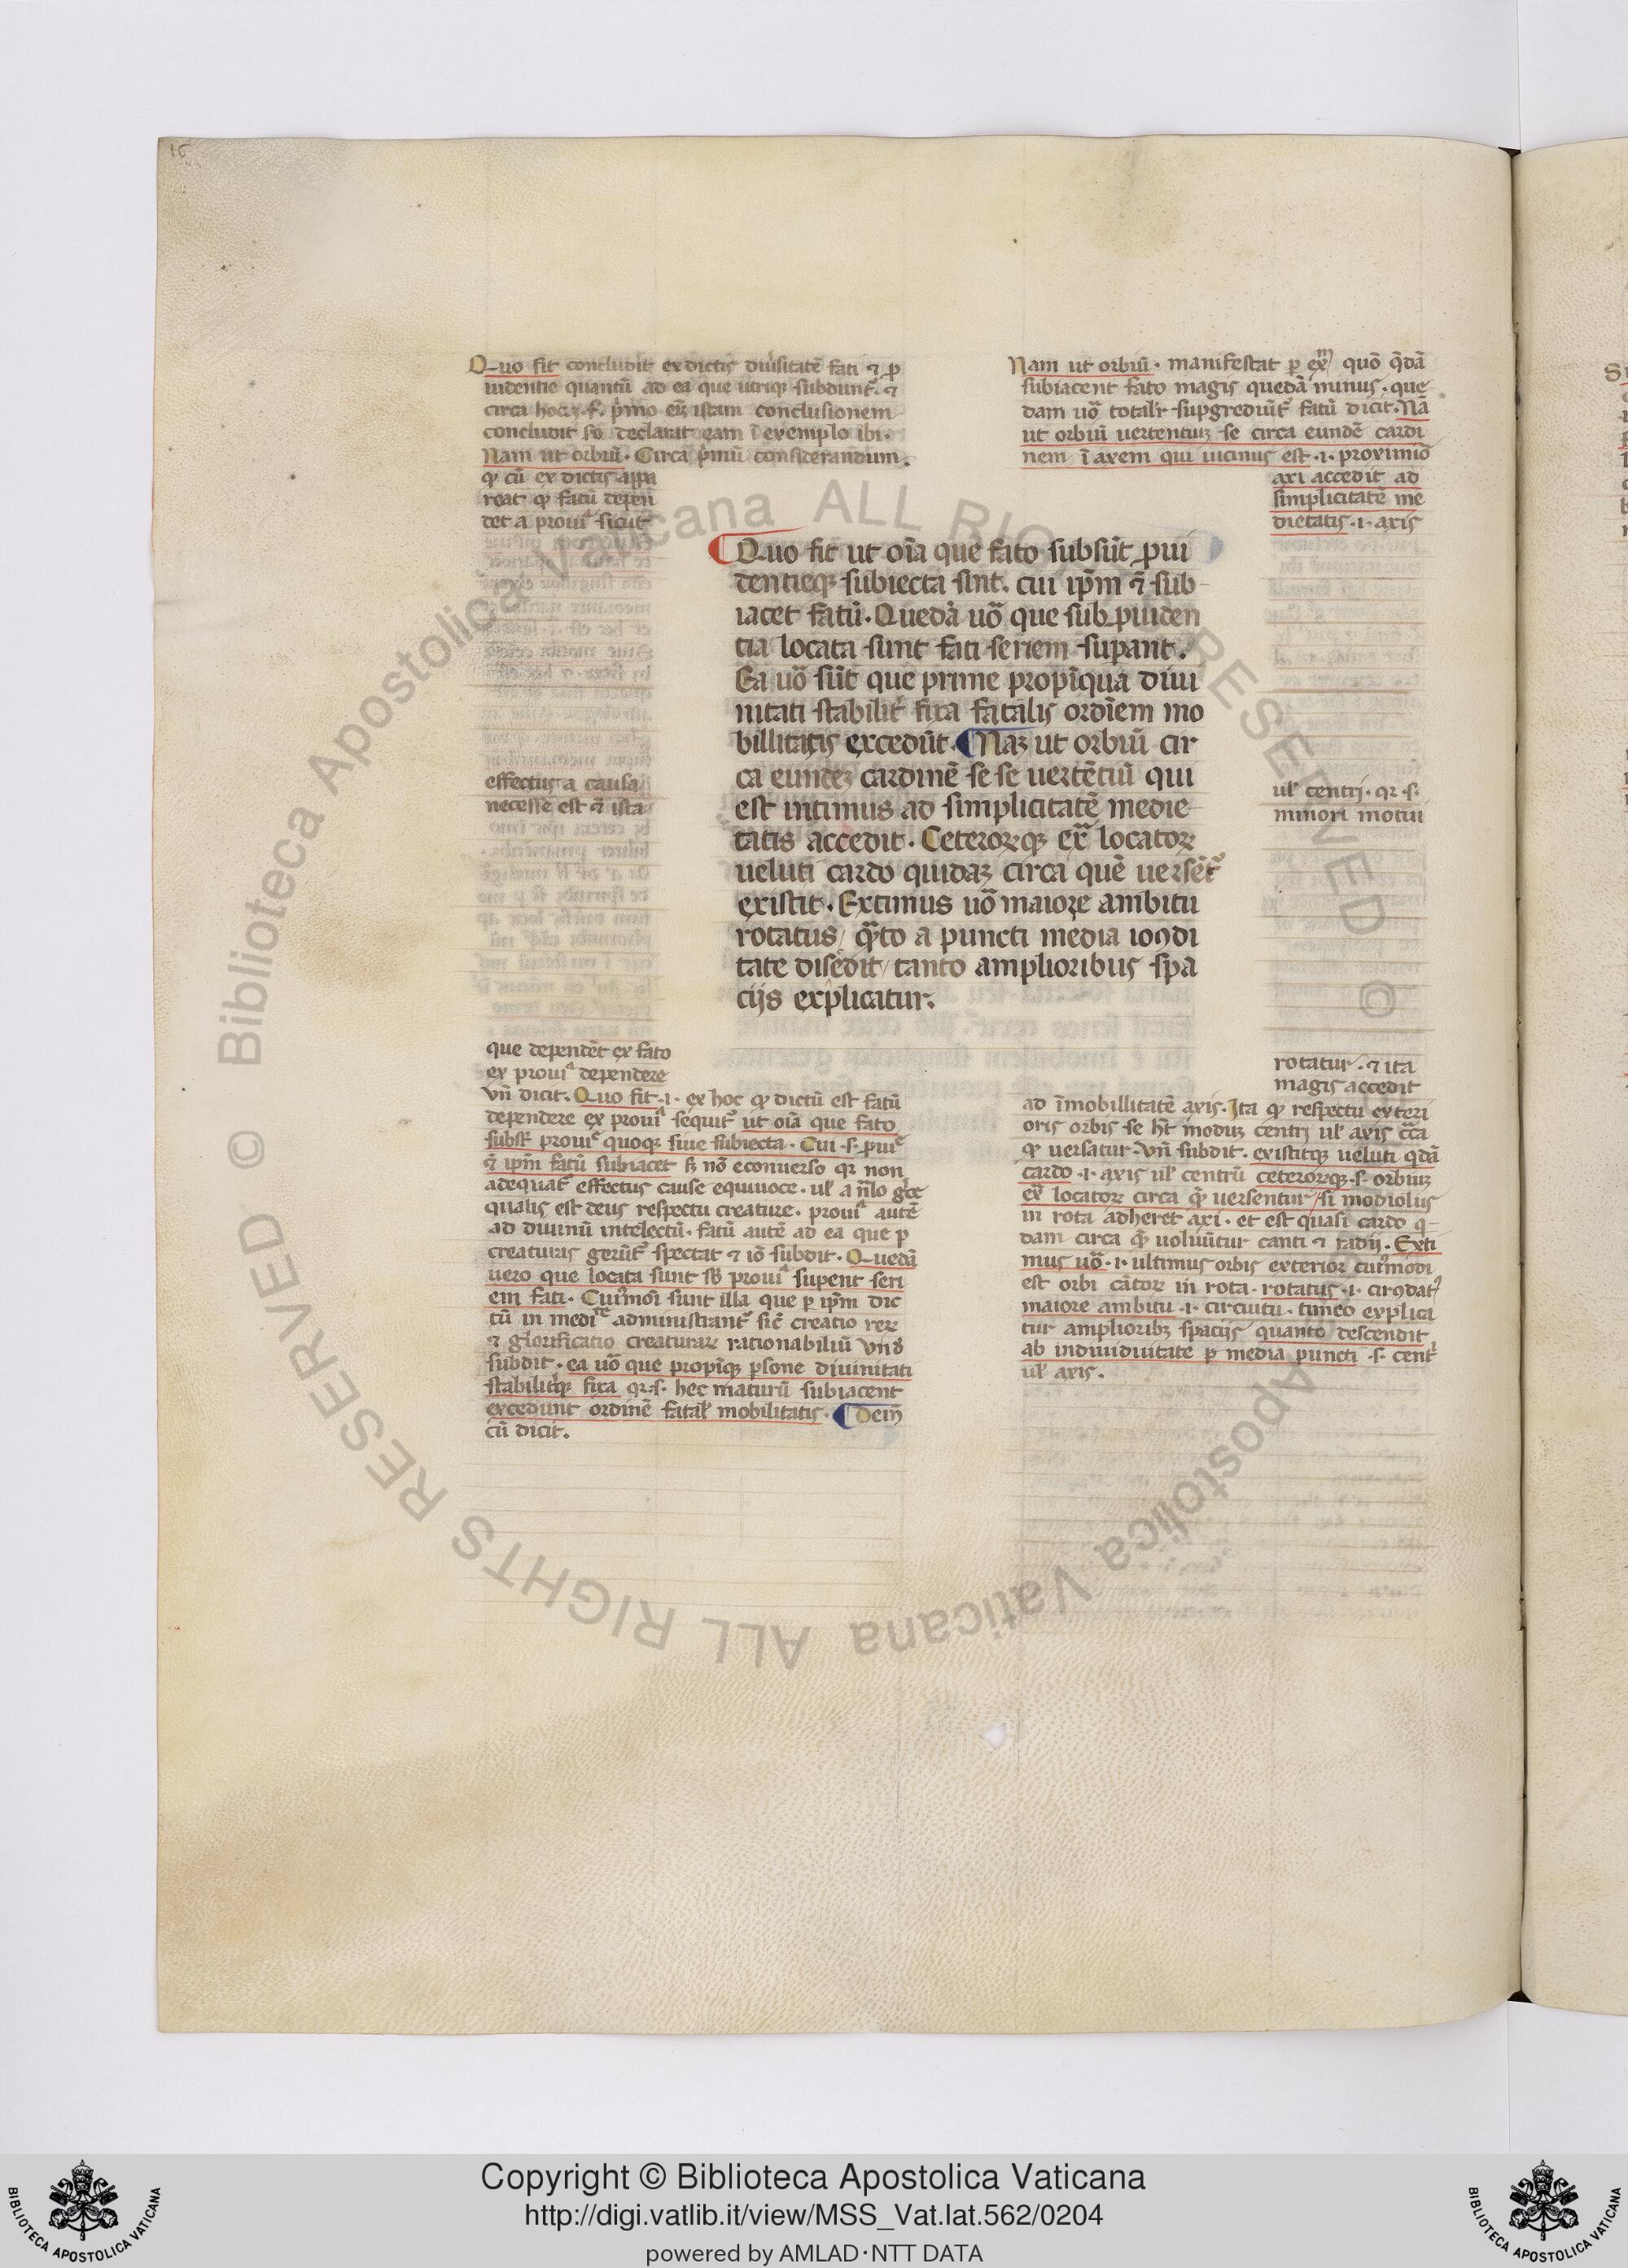 16
Quo fit concludit ex dictis diu'sitatē fati ⁊ ꝓ
uidentie quantū ad ea que utriqꝫ subdunt᷑. ⁊
circa hoc
.f. p'mo eiꝫ istam conclusionem
concludit so declarat eam ī exemplo ibi.
Nam ut orbiū. Circa p'mū considerandum.
qꝫ cū ex dictis appa
reat qꝫ fatū depen
det a prouiᵃ sicut
effectus a causa
necesse est ⁊ ista
que dependēt ex fato
ex prouiᵃ dependere
Vn̄ dicit. Quo fit .i. ex hoc qꝫ dictū est fatū
dependere ex prouiᵃ sequit᷑ ut oīa que fato
subsūt prouiᵉ quoqꝫ siue subiecta. Cui .s. ꝓuiᵉ
⁊ ip̄m fatū subiacet sꝫ nō econuerso qꝛ non
adequat effectus cause equiuoce. ul'
qualis est deus respectu creature. prouiᵃ autē
ad diuinū intelectū. fatū autē ad ea que ꝑ
creaturas gerūt᷑ spectat ⁊ iō subdit. Quedā
uero que locata sunt sb̄ prouiᵃ supent seri
em fati. Cui'mōi sunt illa que ꝑ ip̄m dic
tū in mediᵃᵗᵉ administrant᷑ sic̄ creatio reꝝ
⁊ glorificatio creaturaꝝ rationabiliū vn̄
subdit. ea uō que propīqꝫ ꝑsone diuinitati
stabilit'qꝫ fixa qꝛ .s. hec maturū subiacent
excedunt ordinē fatal' mobilitatis. ¶ Dein̄
cū dicit.
¶ Quo fit ut oīa que fato subsūt ꝓui
dentieqꝫ subiecta sint. cui ip̄m ⁊ sub-
iacet fatū. Quedā uō que sub ꝓuiden
tia locata sunt fati seriem supant.
Ea uō sūt que prime propīqua diui
nitati stabilit' fixa fatalis ordīem mo
billitatis excedūt. ¶ Naꝫ ut orbiū cir
ca eundeꝫ cardinē se se uertētiū qui
est intimus ad simplicitatē medie-
tatis accedit. Ceteroꝝqꝫ exᵃ locatoꝝ
ueluti cardo quidaꝫ circa quē uersēt᷑
existit. Extimus uō maiore ambitu
rotatus / qᵃto a puncti media ioꝯdi
tate disēdit / tanto amplioribus spa
cijs explicatur.
Nam ut orbiū. manifestat ꝑ exᵐ quō q̄dā
subiacent fato magis quedā minus. que
dam uō total'r supgrediūt᷑ fatū dicit. Nā
ut orbiū uertentiuꝫ se circa eundē cardi
nem ī axem qui uicinus est .i. proximiō
axi accedit ad
simplicitatē me
dietatis .i. axis
ul' centri. qꝛ .s.
minori motui
rotatur. ⁊ ita
magis accedit
ad īmobillitatē axis. Ita qꝫ respectu exteri
oris orbis se h̄t moduꝫ centri ul' axis cᵃca
qꝫ uersatur. Vn̄ subdit. existitqꝫ ueluti q̄dā
cardo .i. axis ul' centrū ceteroꝝqꝫ .s. orbiuꝫ
exᵃ locatoꝝ circa q̄ uersentur / si modiolus
in rota adheret axi. et est quasi cardo q-
dam circa q̄ uoluūtur canti ⁊ radij. Exti
mus uō .i. ultimus orbis exterior cui'modi
est orbi cātoꝝ in rota. rotatus .i. cirꝯdat᷑
maiore ambitu .i. circuitu. timeo explica
tur amplioribꝫ spacijs quanto descendit
ab indiuiduitate ꝑ media puncti .s. cent'
ul' axis.
Copyright © Biblioteca Apostolica Vaticana
http://digi.vatlib.it/view/MSS_Vat.lat.562/0204
powered by AMLAD·NTT DATA
© Biblioteca Apostolica Vaticana ALL RIGHTS RESERVED
© Biblioteca Apostolica Vaticana ALL RIGHTS RESERVED
BIBLIOTECA APOSTOLICA VATICANA
BIBLIOTECA APOSTOLICA VATICANA